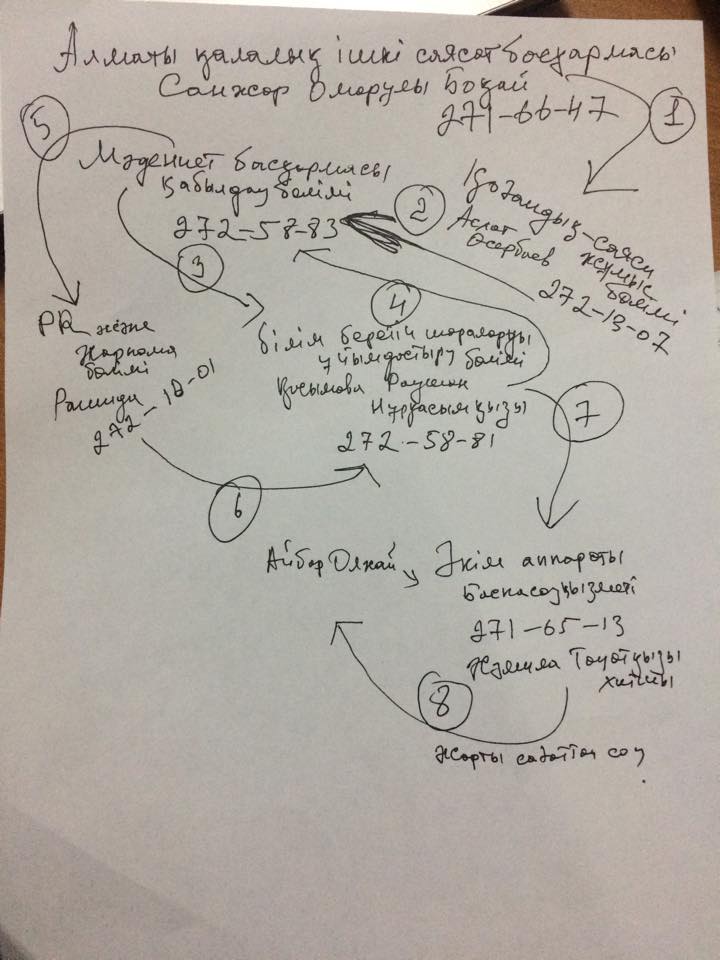 Алматы қалалық ішкі саясат басқармасы
Санжар Омарұлы Боқай
271-66-47
1
5
Мәдениет басқармасы
қабылдау бөлімі
272-58-83
2
Қоғамдық-саяси
жұмыс
бөлімі
Асхат
Өсербаев
272-13-07
3
4
PR және
Жарнама
бөлімі
Рашида
272-18-01
білім беретін шараларды
ұйымдастыру бөлімі
Қосымова Раушан
Нұрқасымқызы
272-58-81
7
6
Айбар Олжай
Әкім аппараты
Баспасөз қызметі
271-65-13
Жәмила Тоқотқызы
8
жарты сағаттан соң